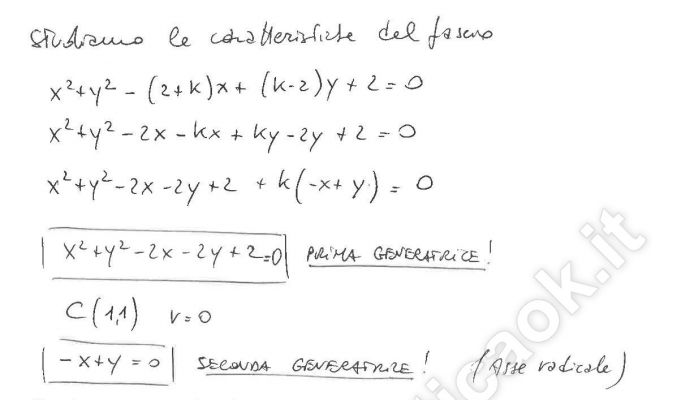 studiamo le caratteristiche del fascio
x²+y² - (2+k)x + (k-2)y + 2 = 0
x²+y² - 2x - kx + ky - 2y + 2 = 0
x²+y² - 2x - 2y + 2 + k(-x+y) = 0
x²+y² - 2x - 2y + 2 = 0 PRIMA GENERATRICE!
C(1,1) r=0
-x+y = 0 SECONDA GENERATRICE! (Asse radicale)
ticaok.it